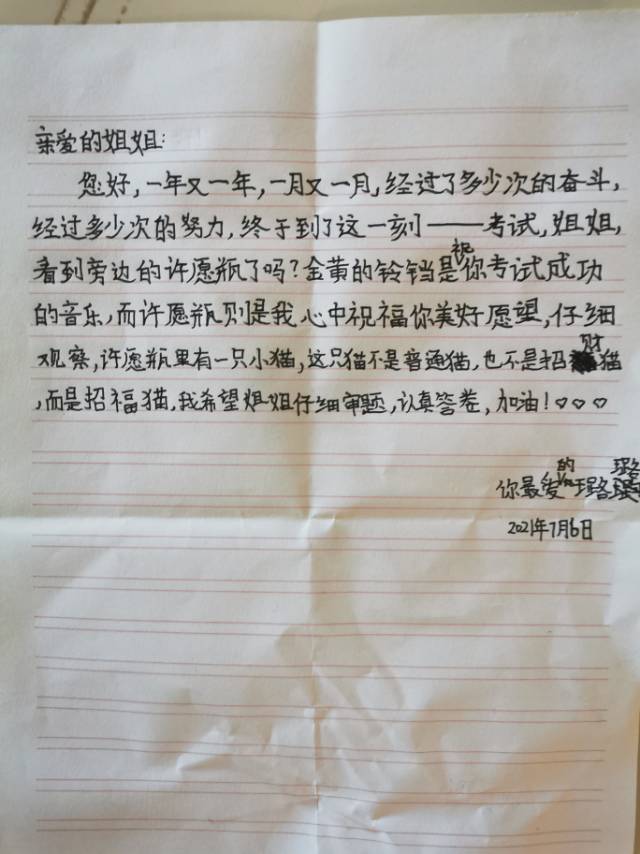 亲爱的姐姐:
您好,一年又一年,一月又一月,经过了多少次的奋斗,
经过多少次的努力,终于到了这一刻——考试,姐姐,
看到旁边的许愿瓶了吗?金黄的铃铛是祝你考试成功
的音乐,而许愿瓶则是我心中祝福你美好愿望,仔细
观察,许愿瓶里有一只小猫,这只猫不是普通猫,也不是招财猫
,而是招福猫,我希望姐姐仔细审题,认真答卷,加油!♡♡♡
你最爱的璐璐
2021年7月6日